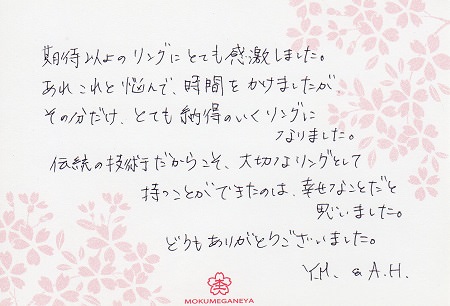 期待以上のリングにとても感激しました。
あれこれと悩んで、時間をかけましたが、
その分だけ、とても納得のいくリングに
なりました。
伝統の技術だからこそ、大切なリングとして
持つことができたのは、幸せなことだと
思いました。
どうもありがとうございました。
Y.M. & A.H.
MOKUMEGANEYA